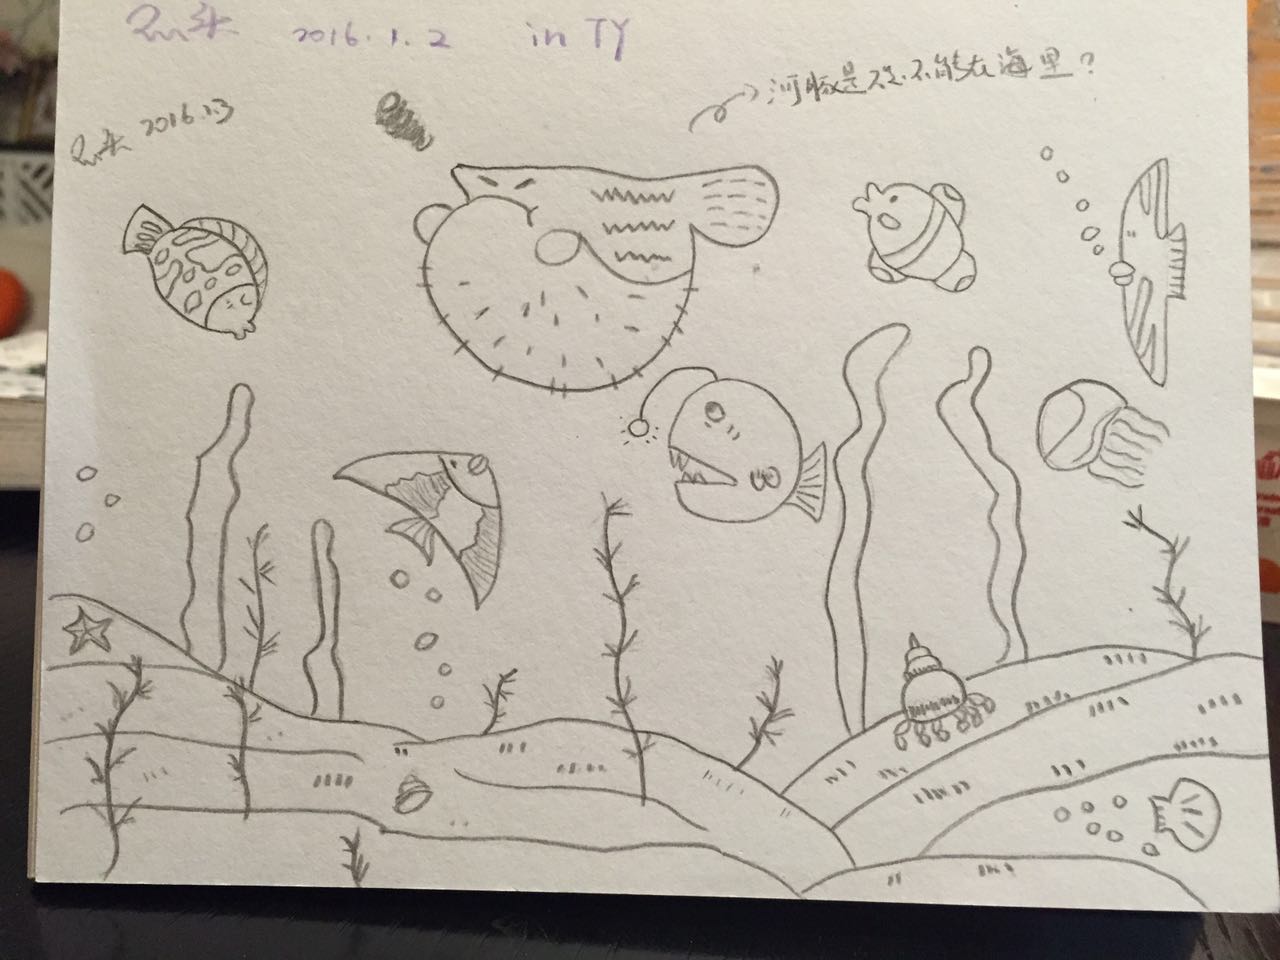 2016.1.2 in TY
河豚是不是不能在海里？
2016.1.3